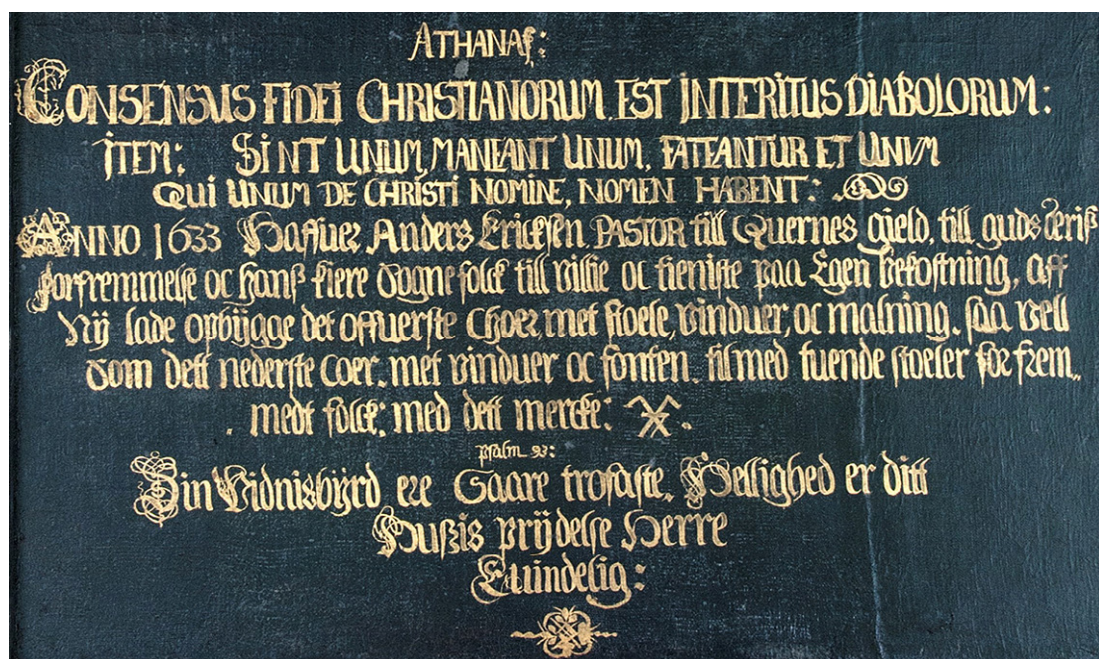 ATHANAS:
CONSENSUS FIDEI CHRISTIANORUM EST INTERITUS DIABOLORUM:
ITEM: SINT UNUM, MANEANT UNUM, FATEANTUR ET UNVM
QUI UNUM DE CHRISTI NOMINE, NOMEN HABENT:
ANNO 1633 Haffuer Anders Ericksen PASTOR till Quernes gield, till guds æris
forfremmelse oc hanß kiere Sognefolck till villie oc tieniste paa Egen bekostning, aff
Nÿ lade opbÿgge det offuerste Choer, met stoele, vinduer, oc malning, saa vell
Som dett nederste Coer, met vinduer oc fonten, til med tuende stoeler for frem„
medt folck: med dett mercke:
Psalm 93:
Din Vidnisbÿrd ere Saare trofaste, Hellighed er ditt
Hußis prÿdelse Herre
Euindelig: